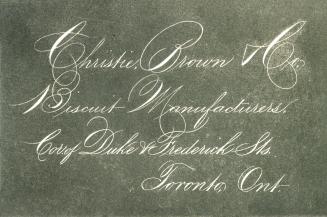 Christie, Brown & Co,
Biscuit Manufacturers,
Cor. of Duke & Frederick Sts.
Toronto, Ont